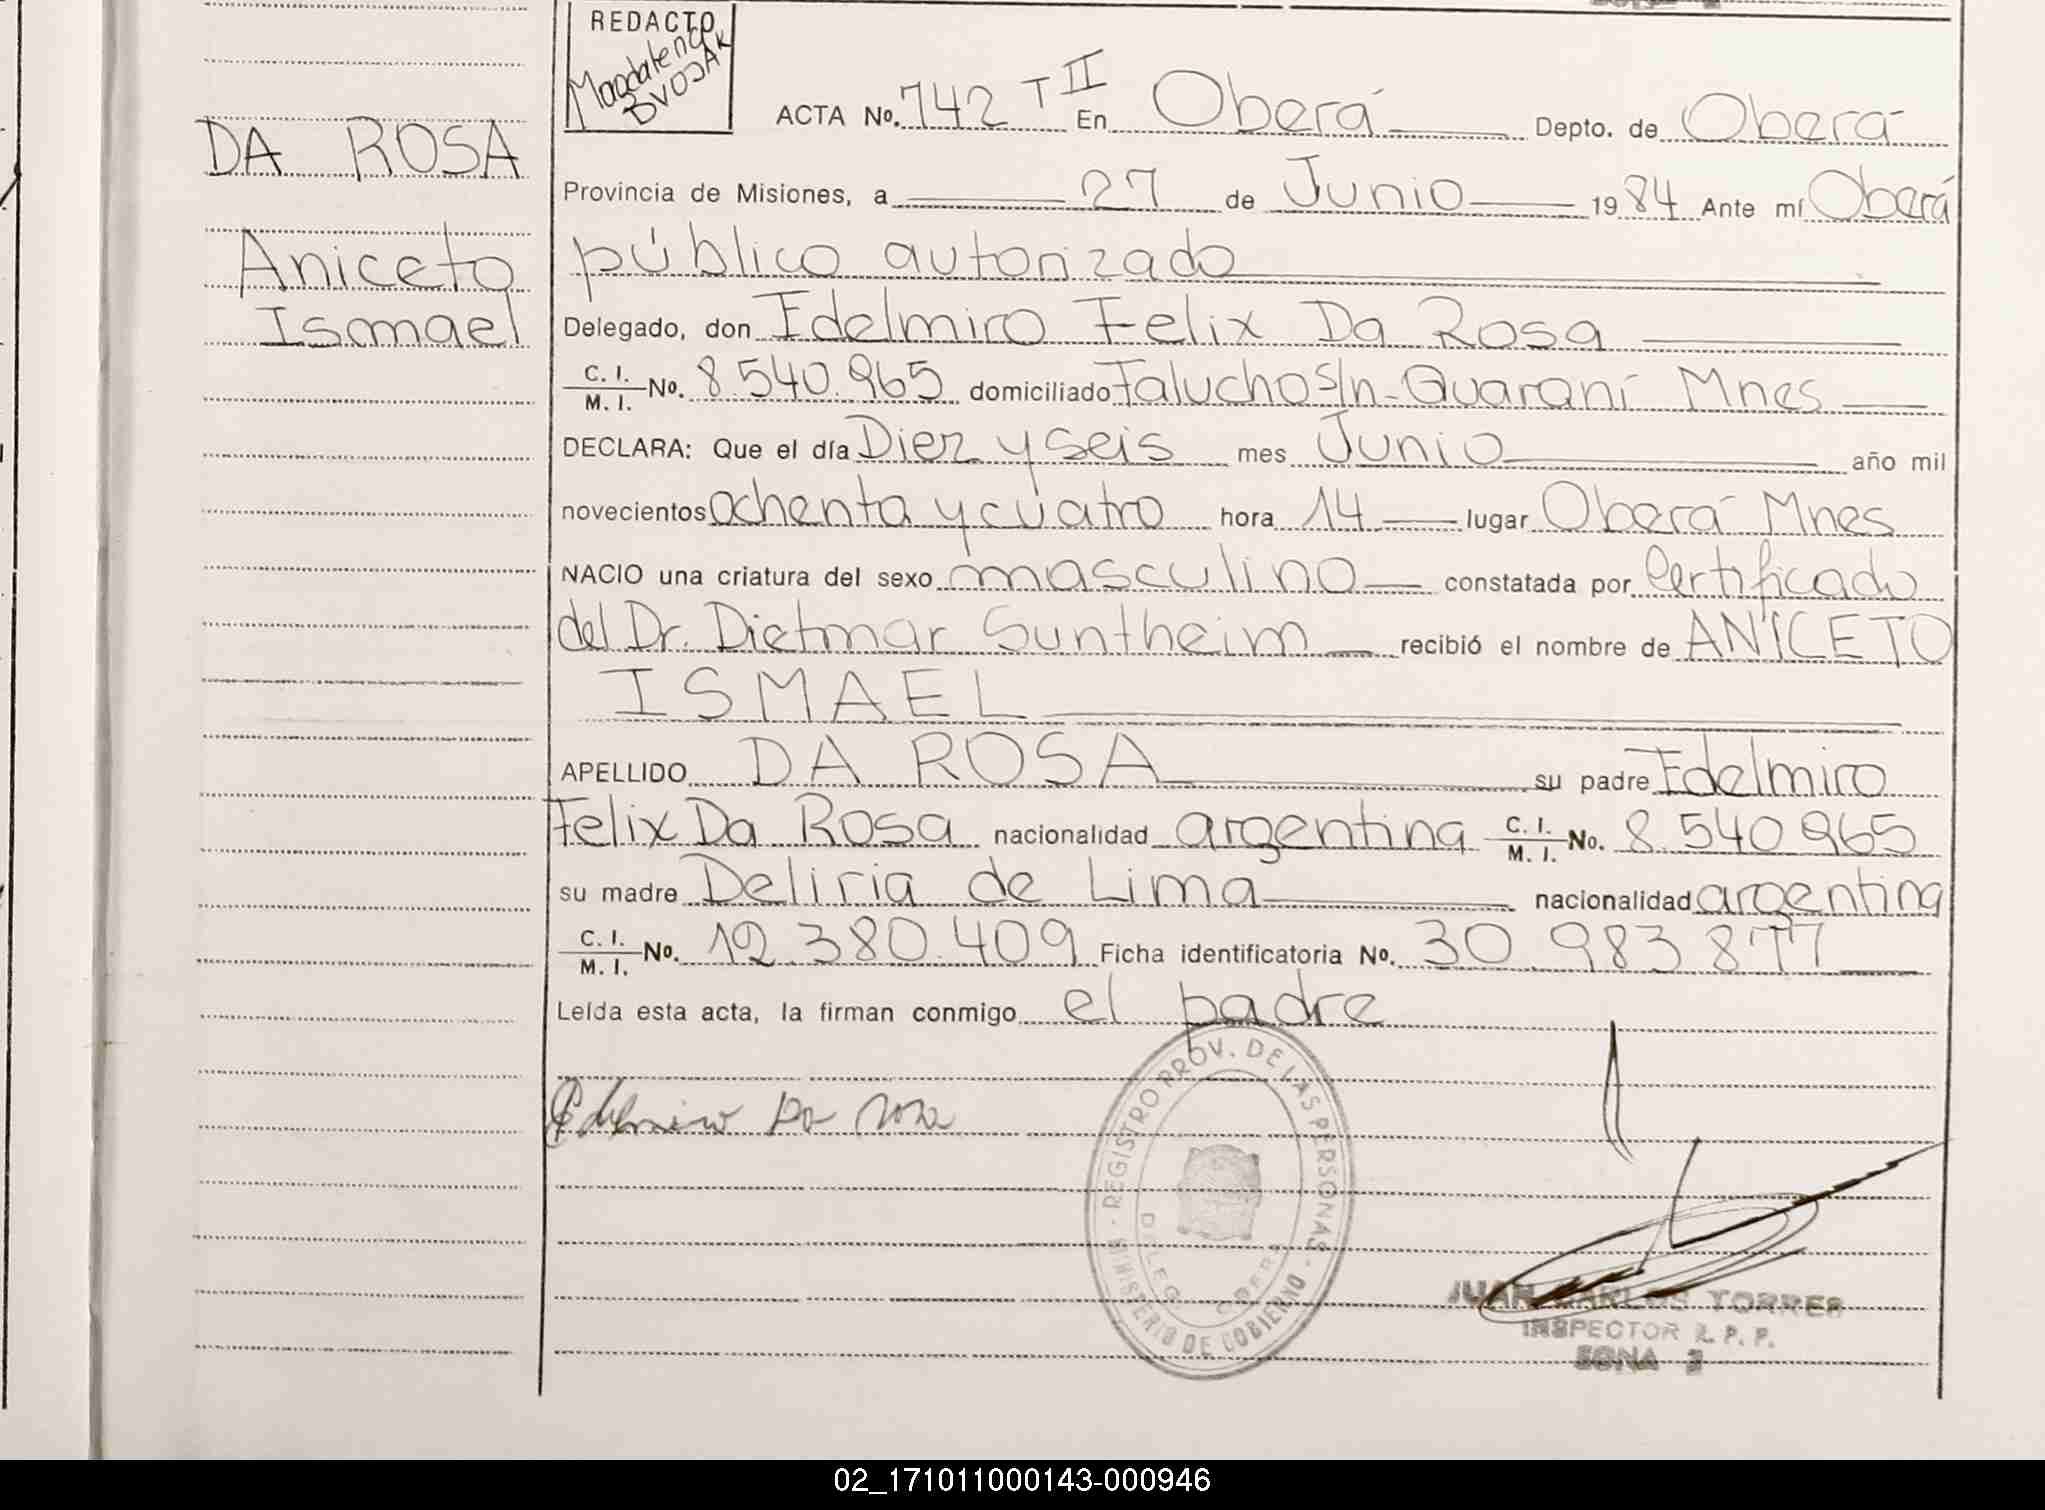 REDACTO
Magdalena
BVOJAK
ACTA No. 742 T II En Oberá Depto. de Oberá
DA ROSA
Provincia de Misiones, a 27 de Junio 1984 Ante mí Oberá
Aniceto
público autorizado
Ismael
Delegado, don Edelmiro Felix Da Rosa
C. I.
M. I. No. 8.540.965 domiciliado Falucho S/n - Guaraní Mnes
DECLARA: Que el día Diez y seis mes Junio año mil
novecientos ochenta y cuatro hora 14 lugar Oberá Mnes
NACIO una criatura del sexo masculino constatada por Certificado
del Dr. Dietmar Suntheim recibió el nombre de ANICETO
ISMAEL
APELLIDO DA ROSA su padre Edelmiro
Felix Da Rosa nacionalidad argentina C. I. M. I. No. 8.540965
su madre Deliria de Lima nacionalidad argentina
C. I.
M. I. No. 12.380.409 Ficha identificatoria No. 30.983.877
Leída esta acta, la firman conmigo el padre
Edelmiro Da Rosa
REGISTRO PROV. DE LAS PERSONAS
MINISTERIO DE GOBIERNO
DELEG. OBERA
JUAN CARLOS TORRES
INSPECTOR R. P. P.
ZONA 2
02_171011000143-000946